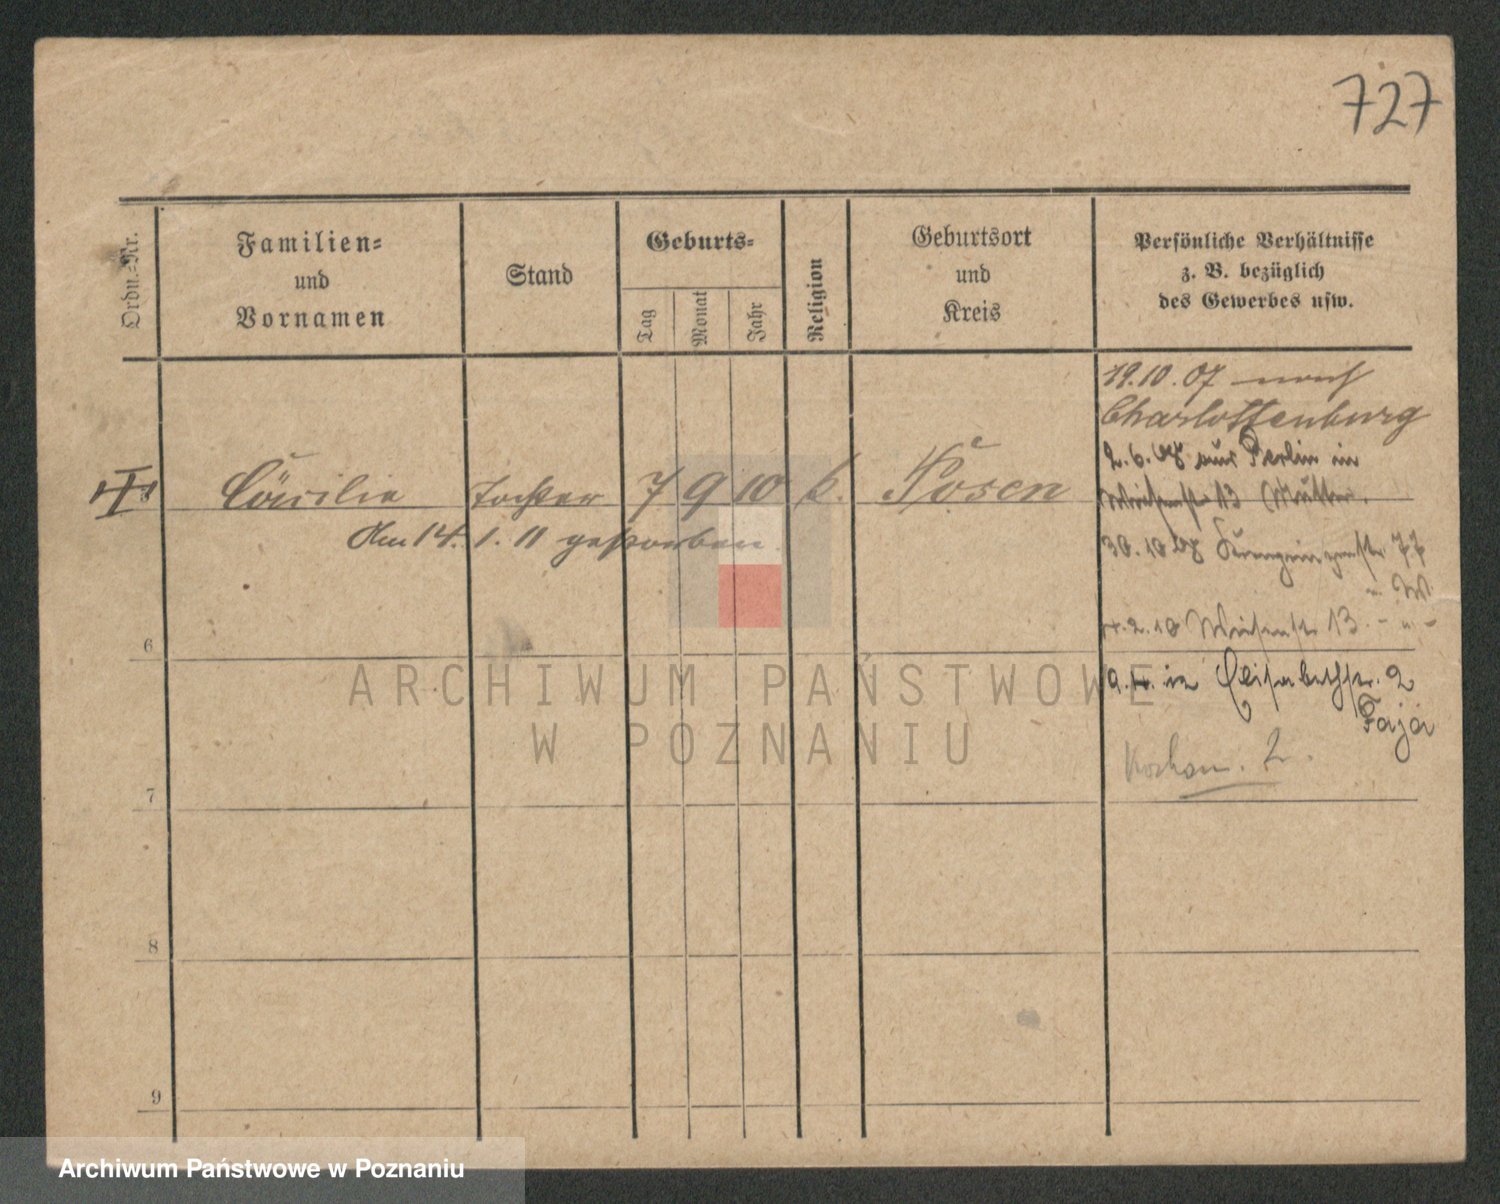 727
Ordn.-Nr.
Familien-
und
Vornamen
Stand
Geburts-
Tag
Monat
Jahr
Religion
Geburtsort
und
Kreis
Persönliche Verhältnisse
z. B. bezüglich
des Gewerbes usw.
19.10.07 nach
Charlottenburg
2.6.08 aus Berlin in
13 Mutter.
Cäcilie Tochter 7 9 10 k. Posen
Am 14. 1. 11 gestorben
30.10.08 77
2.10 Wiesenstr. 13. - " -
6
in Elisabethstr. 2
2.
7
8
9
ARCHIWUM PAŃSTWOWE
W POZNANIU
Archiwum Państwowe w Poznaniu